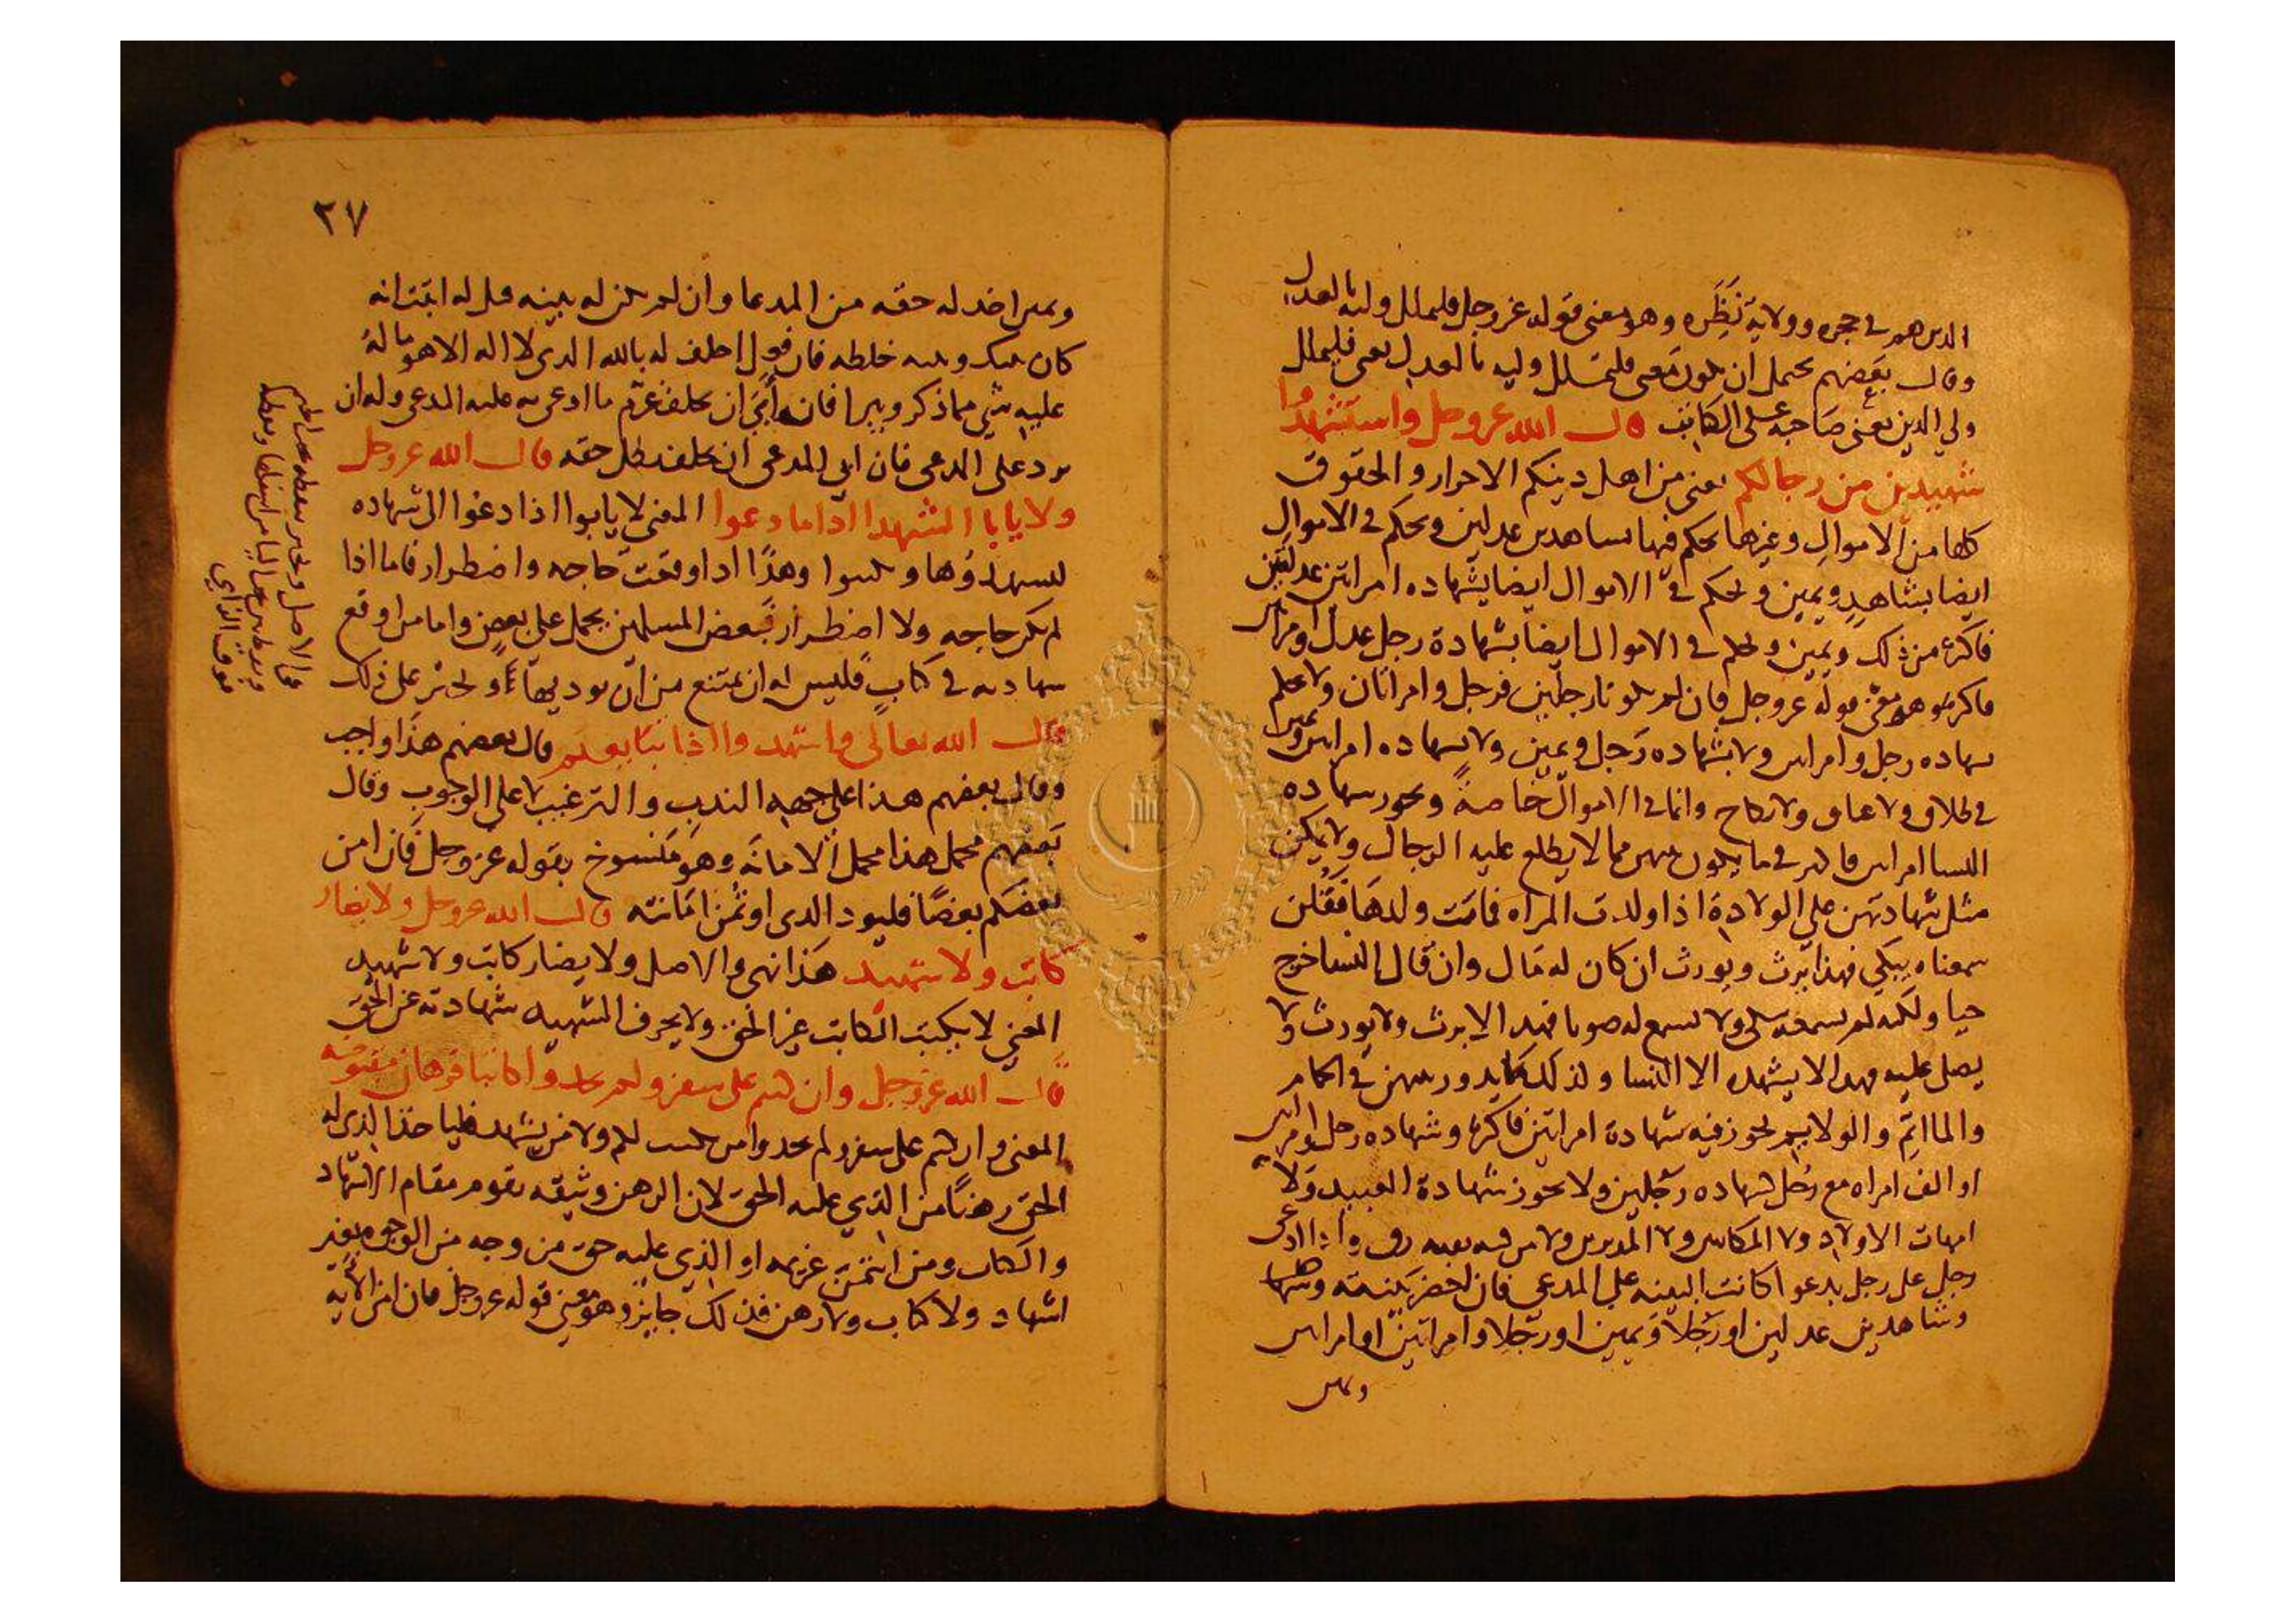 الدين هم في حجره وولايه نظره وهو معنى قوله عز وجل فليملل وليه بالعدل
وقال بعضهم يحتمل ان يكون معنى فليملل وليه بالعدل يعني فليملل
ولي الدين يعني صاحبه على الكاتب قال الله عز وجل واستشهدوا
شهيدين من رجالكم يعني من اهل دينكم الاحرار والحقوق
كلها من الاموال وغيرها يحكم فيها بشاهدين عدلين ويحكم في الاموال
ايضا بشاهد ويمين ويحكم في الاموال ايضا بشهاده امراتين عدلتين
فاكثر من ذلك ويمين ويحكم في الاموال ايضا بشهادة رجل عدل وامراتين
فاكثر وهو معنى قوله عز وجل فان لم يكونا رجلين فرجل وامراتان ولا يحكم
بشهاده رجل وامراتين ولا بشهاده رجل ويمين ولا بشهاده امراتين ويمين
في طلاق ولا عتاق ولا نكاح وانما في الاموال خاصة ويجوز شهاده
النسا امراتين فاكثر في ما يكون بينهن مما لا يطلع عليه الرجال ولا يمكن
مثل شهادتهن على الولادة اذا ولدت المراه فمات ولدها فقلن
سمعناه يبكي فهذا يرث ويورث ان كان له مال وان قال النسا خرج
حيا ولكنه لم نسمعه بكى ولا نسمع له صوتا فهذا لا يرث ولا يورث ولا
يصلى عليه فهذا لا يشهده الا النسا ولذلك ما يدور بينهن في الحمام
والماتم والولايم يجوز فيه شهادة امراتين فاكثر وشهاده رجل وامراتين
او الف امراه مع رجل شهاده رجلين ولا يجوز شهادة العبيد ولا
امهات الاولاد ولا المكاتبين ولا المدبرين ولا من فيه بقيه رق واذا ادعى
رجل على رجل بدعوا كانت البينه على المدعي فان احضر بينته وشهاد
وشاهدين عدلين او رجلا ويمين او رجلا وامراتين او امراتين
ويمين
٢٧
ويمين اخذ له حقه من المدعا وان لم يكن له بينه قيل له اثبت انه
كان بينك وبينه خلطه فان فعل احلف له بالله الذي لا اله الا هو ما له
عليه شي مما ذكر وبيرا فان ابى ان يحلف غرم ما ادعى به عليه المدعي وله ان
يرد على المدعي فان ابى المدعي ان يحلف بطل حقه قال الله عز وجل
ولا يابا الشهدا اذا ما دعوا المعنى لا يابوا اذا دعوا الى الشهاده
ليشهدوها ويكتبوا وهذا اذا وقعت حاجه واضطرار فاما اذا
لم يكن حاجه ولا اضطرار فبعض المسلمين يحمل على بعض واما من اوقع
شهادته في كتاب فليس له ان يمتنع من ان يوديها ويجبر على ذلك
وقال الله تعالى واشهدوا اذا تبايعتم قال بعضهم هذا واجب
وقال بعضهم هذا على جهه الندب والترغيب لا على الوجوب وقال
بعضهم محمل هذا محمل الامانه وهو منسوخ بقوله عز وجل فان امن
بعضكم بعضا فليود الذي اوتمن امانته قال الله عز وجل ولا يضار
كاتب ولا شهيد هذا نهي والاصل ولا يضار كاتب ولا شهيد
المعنى لا يكتب الكاتب غير الحق ولا يحرف الشهيد شهادته عن الحق
قال الله عز وجل وان كنتم على سفر ولم تجدوا كاتبا فرهان مقبوضه
المعنى وان كنتم على سفر ولم تجدوا من يكتب لكم ولا من يشهد فلياخذ الذي له
الحق رهنا من الذي عليه الحق لان الرهن وثيقه يقوم مقام الاشهاد
والكتاب ومن ائتمن غريمه او الذي عليه حق من وجه من الوجوه بغير
اشهاد ولا كتاب ولا رهن فذلك جايز وهو معنى قوله عز وجل فان امن الآيه